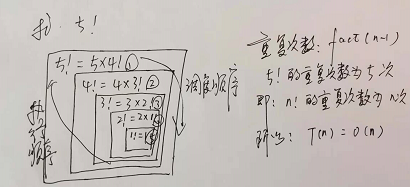 求：5!
5! = 5×4! ①
4! = 4×3! ②
3! = 3×2! ③
2! = 2×1! ④
1! = 1
调用顺序
执行顺序
重复次数：fact(n-1)
5!的重复次数为5次
即：n!的重复次数为n次
所以：T(n) = O(n)